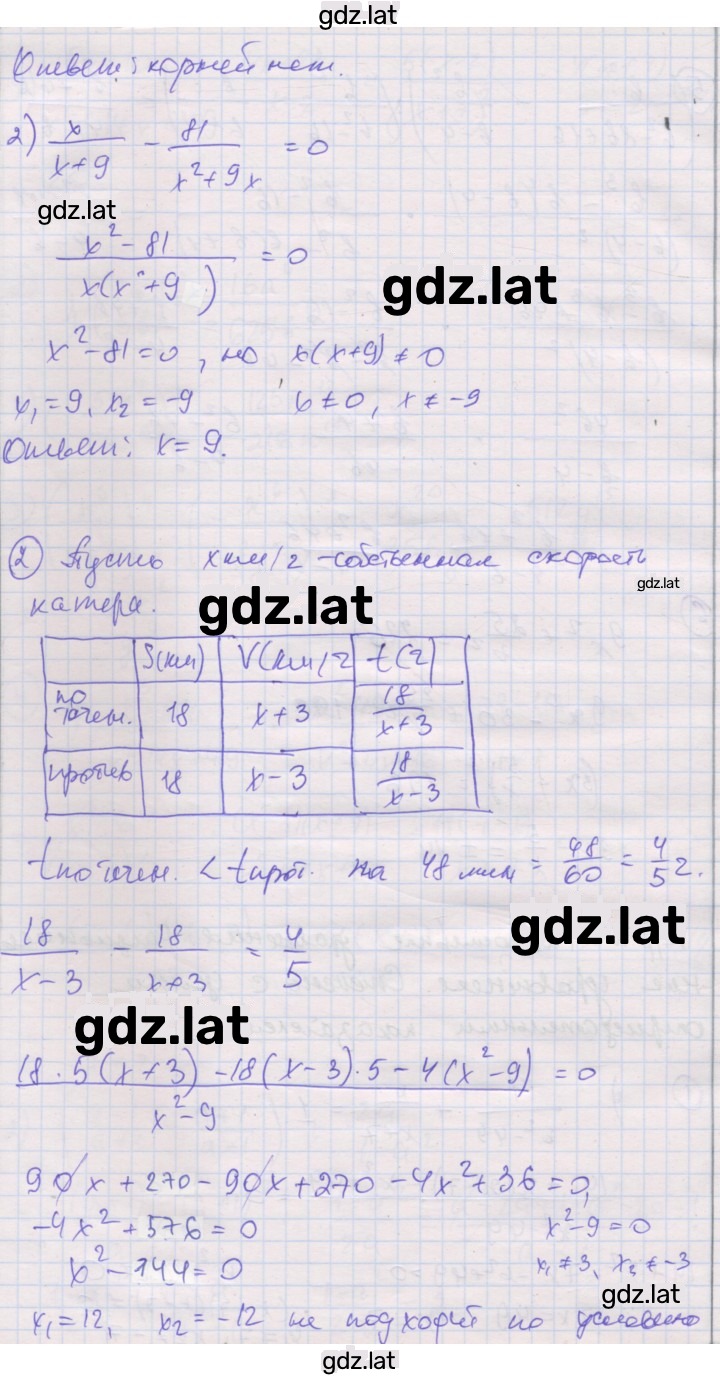 gdz.lat
Ответ: корней нет.
2) x/(x+9) - 81/(x²+9x) = 0
gdz.lat
(x²-81)/(x(x+9)) = 0
gdz.lat
x²-81=0, но x(x+9)≠0
x₁=9, x₂=-9 x≠0, x≠-9
Ответ: x=9.
② Пусть x км/г - собственная скорость
gdz.lat
катера.
gdz.lat
S(км) V(км/г t(г)
по течен. 18 x+3 18/(x+3)
против 18 x-3 18/(x-3)
tпо течен. < tпрот. на 48 мин = 48/60 = 4/5 г.
gdz.lat
18/(x-3) - 18/(x+3) = 4/5
gdz.lat
(18·5(x+3)-18(x-3)·5-4(x²-9))/(x²-9) = 0
90x+270-90x+270-4x²+36=0,
-4x²+576=0 x²-9=0
x²-144=0 x₁≠3, x₂≠-3
gdz.lat
x₁=12, x₂=-12 не подходит по условию
gdz.lat